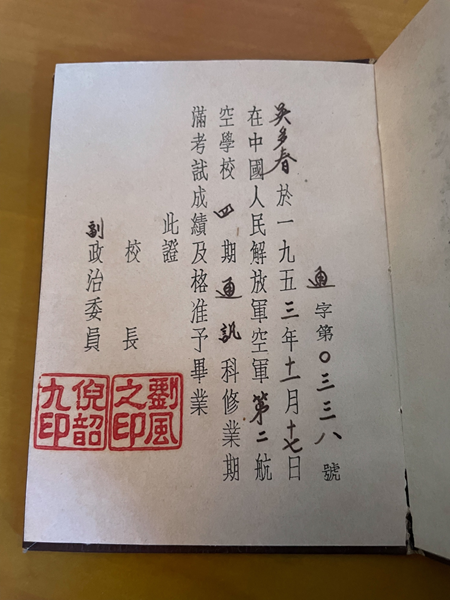 通字第〇三三八號
吳多春於一九五三年十一月十七日
在中國人民解放軍空軍第二航
空學校四期通訊科修業期
滿考試成績及格准予畢業
此證
校長
劉風之印
副政治委員
倪韶九印